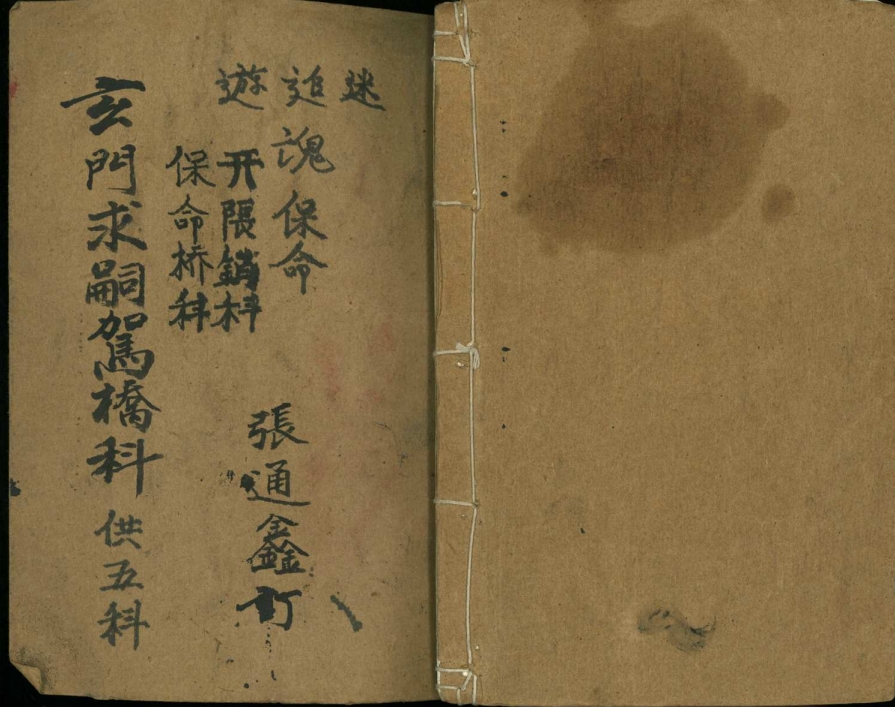 迷
追魂保命
遊 开限銷科
保命桥科
張通鑫訂
玄門求嗣駕橋科 供五科